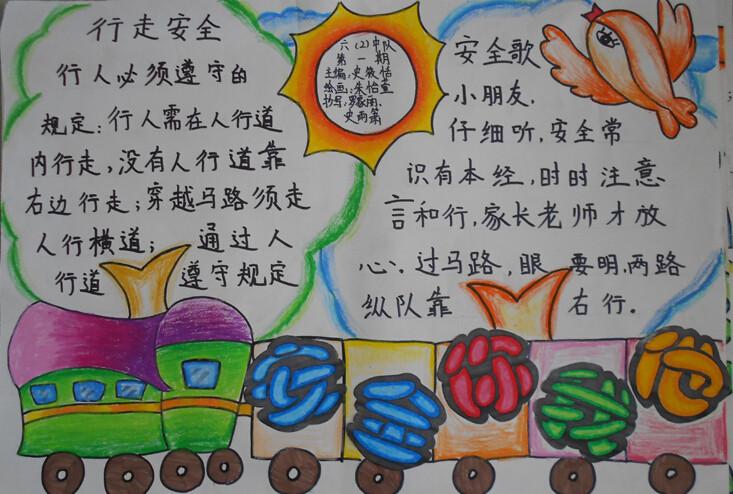 行走安全
行人必须遵守的
规定：行人需在人行道
内行走，没有人行道靠
右边行走；穿越马路须走
人行横道； 通过人
行道 遵守规定
六（2）中队
第一期
主编：史筱恬
绘画：朱怡萱
抄写：罗家雨、
史雨箫
安全歌
小朋友，
仔细听，安全常
识有本经，时时注意
言和行，家长老师才放
心、过马路，眼 要明，两路
纵队靠 右行。
安全伴我